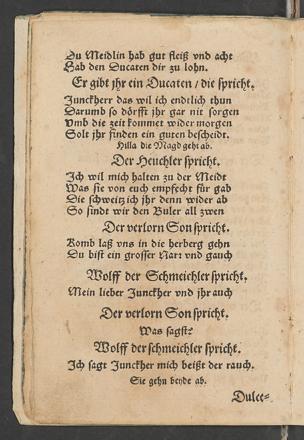 Du Meidlin hab gut fleiß vnd acht
Hab den Ducaten dir zu lohn.
Er gibt jhr ein Ducaten / die spricht.
Junckherr das wil ich endtlich thun
Darumb so dörfft jhr gar nit sorgen
Vmb die zeit kommet wider morgen
Solt jhr finden ein guten bescheidt.
Hilla die Magd geht ab.
Der Heuchler spricht.
Ich wil mich halten zu der Meidt
Was sie von euch empfecht für gab
Die schweitz ich jhr denn wider ab
So sindt wir den Buler all zwen
Der verlorn Son spricht.
Komb laß vns in die herberg gehn
Du bist ein grosser Narr vnd gauch
Wolff der Schmeichler spricht.
Mein lieber Junckher vnd jhr auch
Der verlorn Son spricht.
Was sagst?
Wolff der schmeichler spricht.
Ich sagt Junckher mich beißt der rauch.
Sie gehn beyde ab.
Dulce=